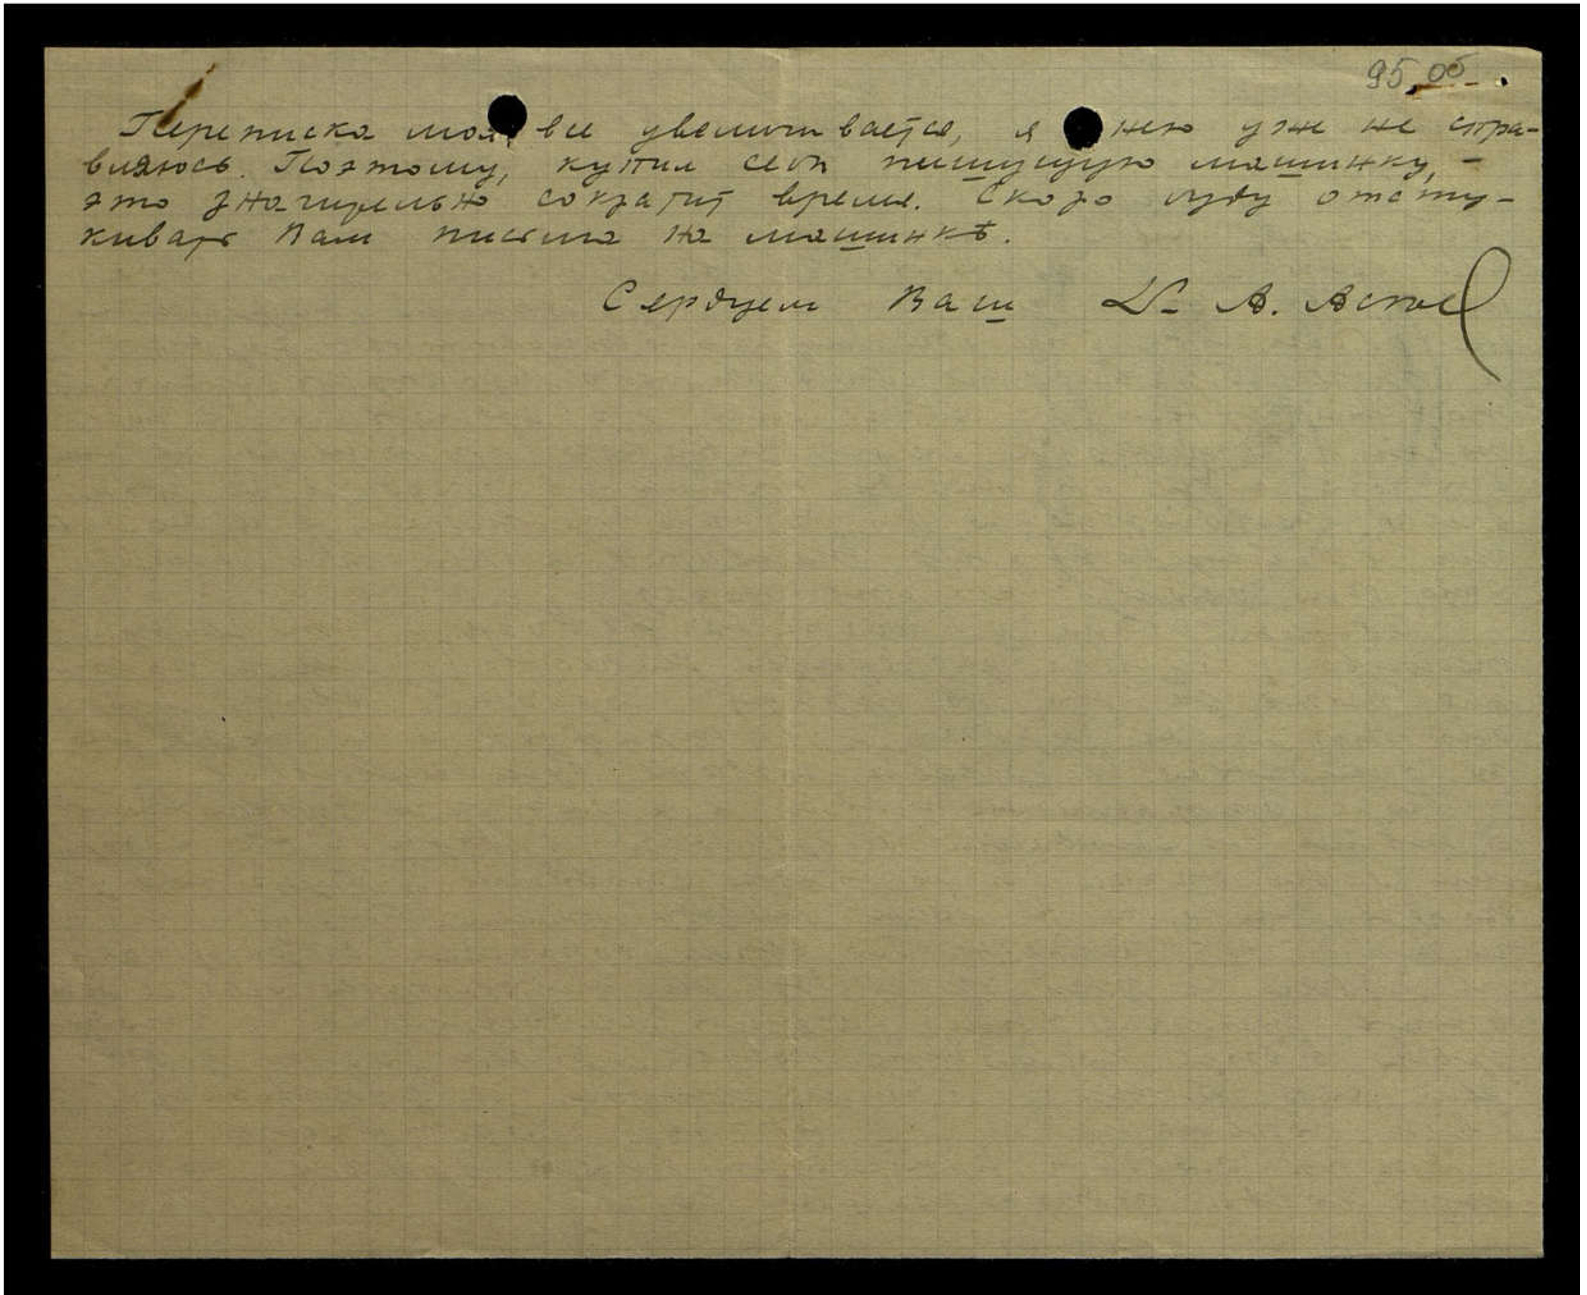 95, об.
Переписка моя все увеличивается, я нею уже не спра-
вляюсь. Поэтому, купил себѣ пишущую машинку, -
это значительно сократит время. Скоро буду отсту-
кивать Вам письма на машинкѣ.
Сердцем Ваш Д- А. Асеев